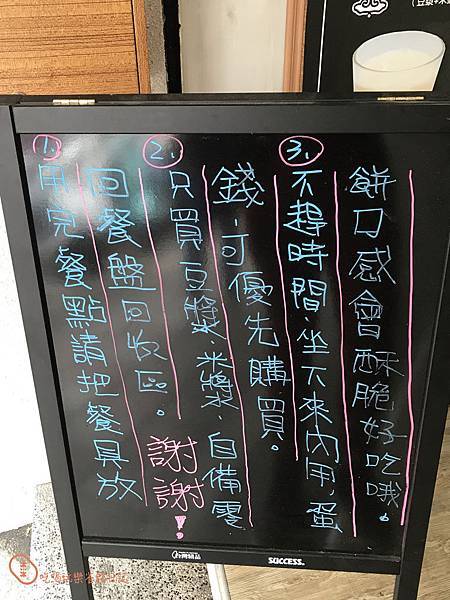 1. 用完餐點請把餐具放
回餐盤回收區。謝謝!
2. 只買豆漿、米漿、自備零
錢,可優先購買。
3. 不趕時間、坐下來內用,蛋
餅口感會酥脆好吃哦!
SUCCESS.